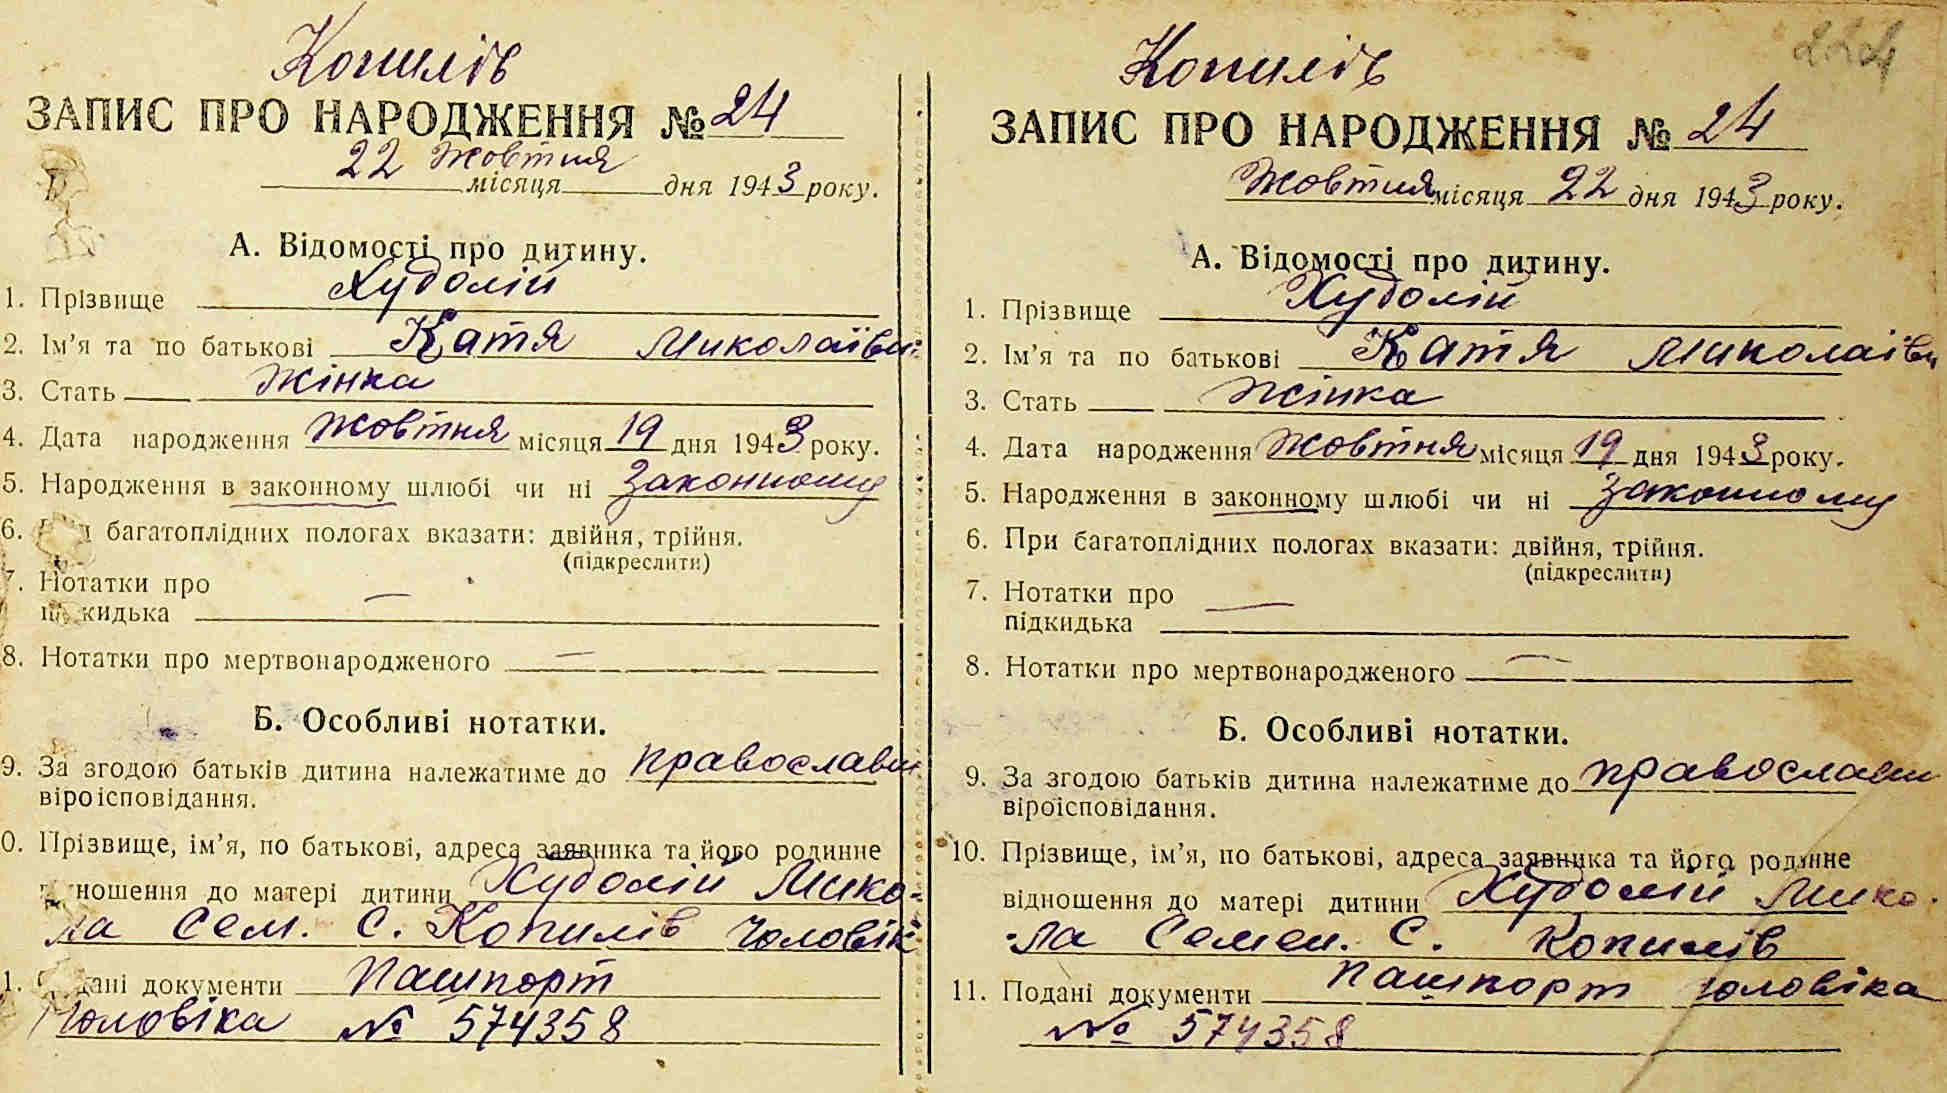 Копилів
ЗАПИС ПРО НАРОДЖЕННЯ № 24
22 жовтня місяця дня 1943 року.
А. Відомості про дитину.
1. Прізвище Худолій
2. Ім'я та по батькові Катя Миколаївн
3. Стать жінка
4. Дата народження жовтня місяця 19 дня 1943 року.
5. Народження в законному шлюбі чи ні законному
6. багатоплідних пологах вказати: двійня, трійня.
(підкреслити)
7. Нотатки про
кидька —
8. Нотатки про мертвонародженого —
Б. Особливі нотатки.
9. За згодою батьків дитина належатиме до православн
віроісповідання.
0. Прізвище, ім'я, по батькові, адреса заявника та його родинне
ношення до матері дитини Худолій Мико-
ла Сем. С. Копилів чоловік
1. дані документи Пашпорт
чоловіка № 574358
224
Копилів
ЗАПИС ПРО НАРОДЖЕННЯ № 24
Жовтня місяця 22 дня 1943 року.
А. Відомості про дитину.
1. Прізвище Худолій
2. Ім'я та по батькові Катя Миколаївн
3. Стать Жінка
4. Дата народження жовтня місяця 19 дня 1943 року.
5. Народження в законному шлюбі чи ні законному
6. При багатоплідних пологах вказати: двійня, трійня.
(підкреслити)
7. Нотатки про
підкидька —
8. Нотатки про мертвонародженого —
Б. Особливі нотатки.
9. За згодою батьків дитина належатиме до православн
віроісповідання.
10. Прізвище, ім'я, по батькові, адреса заявника та його родинне
відношення до матері дитини Худолій Мико-
ла Семен. С. Копилів
11. Подані документи Пашпорт чоловіка
№ 574358